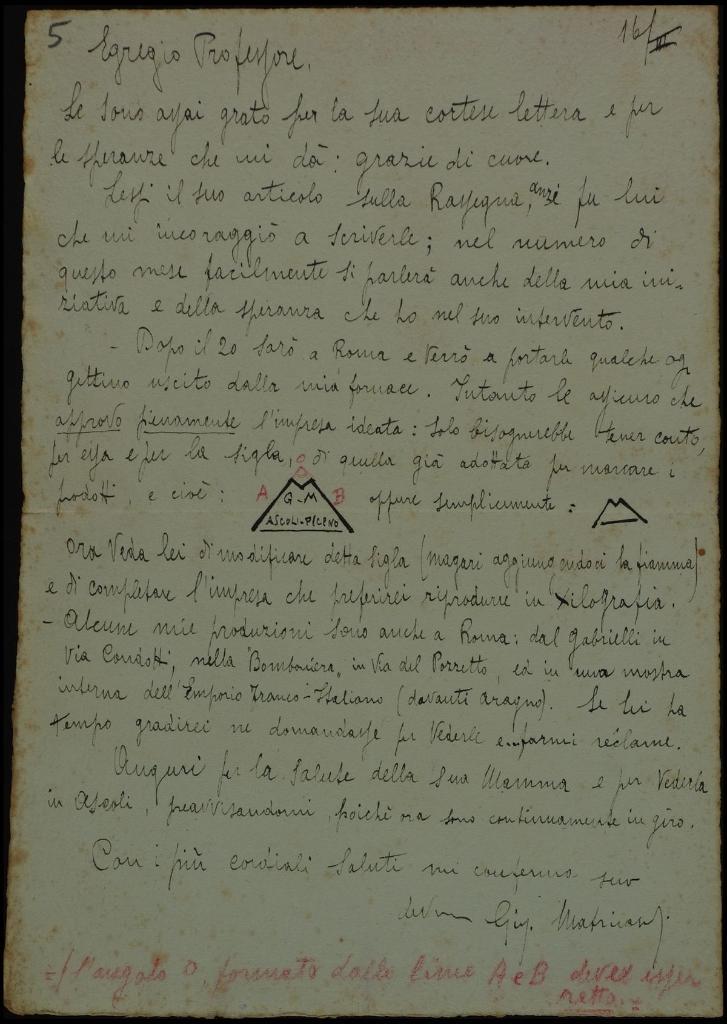 5
16/III
Egregio Professore.
Le sono assai grato per la sua cortese lettera e per
le speranze che mi dà: grazie di cuore.
Lessi il suo articolo sulla Rassegna, anzi fu lui
che mi incoraggiò a scriverle; nel numero di
questo mese facilmente si parlerà anche della mia ini-
ziativa e della speranza che ho nel suo intervento.
- Dopo il 20 sarò a Roma e verrò a portarle qualche og
gettino uscito dalla mia fornace. Intanto le assicuro che
approvo pienamente l'impresa ideata: solo bisognerebbe tener conto,
per essa e per la sigla, di quella già adottata per marcare i
prodotti, e cioè: A O B oppure semplicemente:
G-M
ASCOLI-PICENO
Ora veda lei di modificare detta sigla (magari aggiungendoci la fiamma)
e di completare l'impresa che preferirei riprodurre in xilografia.
- Alcune mie produzioni sono anche a Roma: dal Gabrielli in
Via Condotti, nella "Bomboniera" in Via del Pozzetto, ed in una mostra
interna dell'Emporio Franco-Italiano (davanti Aragno). Se lei ha
tempo gradirei ne domandasse per vederle e farmi réclame.
Auguri per la salute della sua Mamma e per vederla
in Ascoli, preavvisandomi, poichè ora sono continuamente in giro.
Con i più cordiali saluti mi confermo suo
dev.mo Gig. Matricardi
=/ l'angolo O formato dalle linee A e B deve esser
retto.=